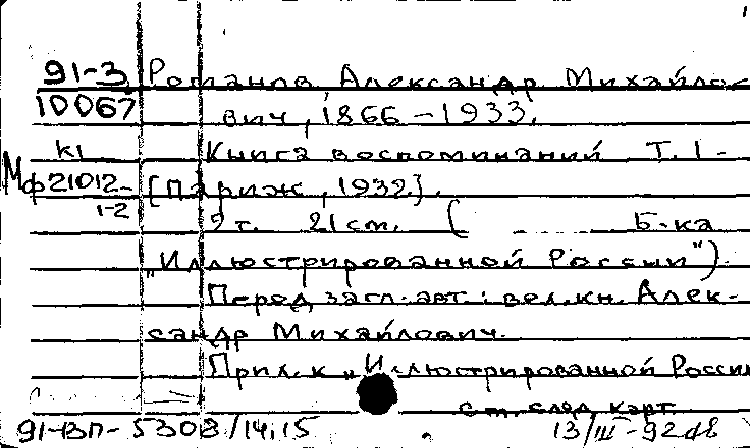 91-3 Романов, Александр Михайло-
10067 вич, 1866-1933.
к1 Книга воспоминаний Т. 1-
Мф21012- [Париж, 1932].
1-2
2 т. 21 см. ( Б-ка
„Иллюстрированной России").
Перед загл. авт.: вел. кн. Алек-
сандр Михайлович.
Прил. к „Иллюстрированной России
см. след. карт.
91-ВП- 5308/14,15 13/III-92